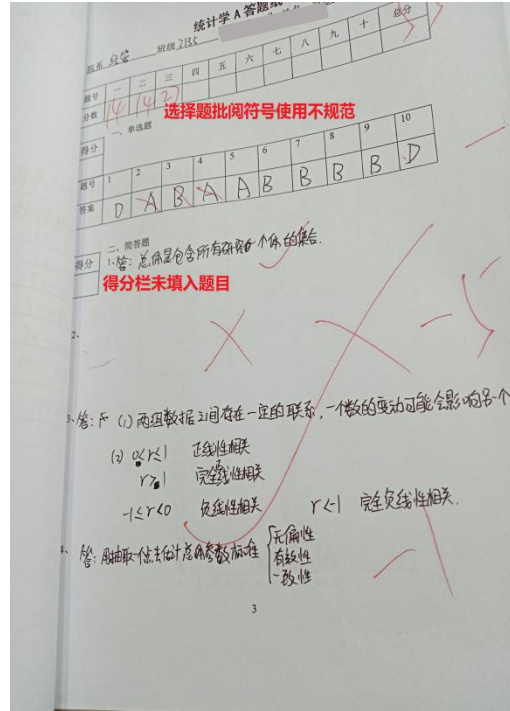 统计学 A 答题纸
院系 经管 班级 2135
题号 一 二 三 四 五 六 七 八 九 十 总分
分数 14 14 27
选择题批阅符号使用不规范
得分 一、单选题
题号 1 2 3 4 5 6 7 8 9 10
答案 D A B A A B B B B D
得分 二、简答题
1、答：总体是包含所有研究个体的集合.
得分栏未填入题目
2、
-5
3、答： (1) 两组数据之间存在一定的联系，一个数的变动可能会影响另一个
(2) 0≤r≤1 正线性相关
r>1 完全线性相关
-1≤r<0 负线性相关 r<-1 完全负线性相关.
4、答：用抽取一个点去估计总体参数标准 无偏性
有效性
一致性
-1
3